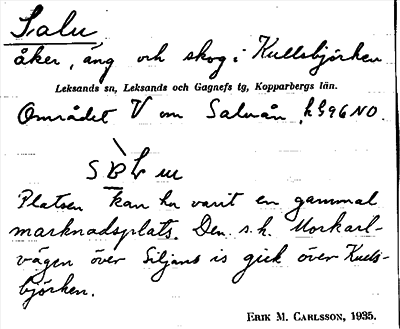 Salu
åker, äng och skog i Kullsbjörken
Leksands sn, Leksands och Gagnefs tg, Kopparbergs län.
Området V om Saluån, h§96NO.
Platsen kan ha varit en gammal
marknadsplats. Den s.k. Morkarl-
vägen över Siljans is gick över Kulls-
björken.
ERIK M. CARLSSON, 1935.